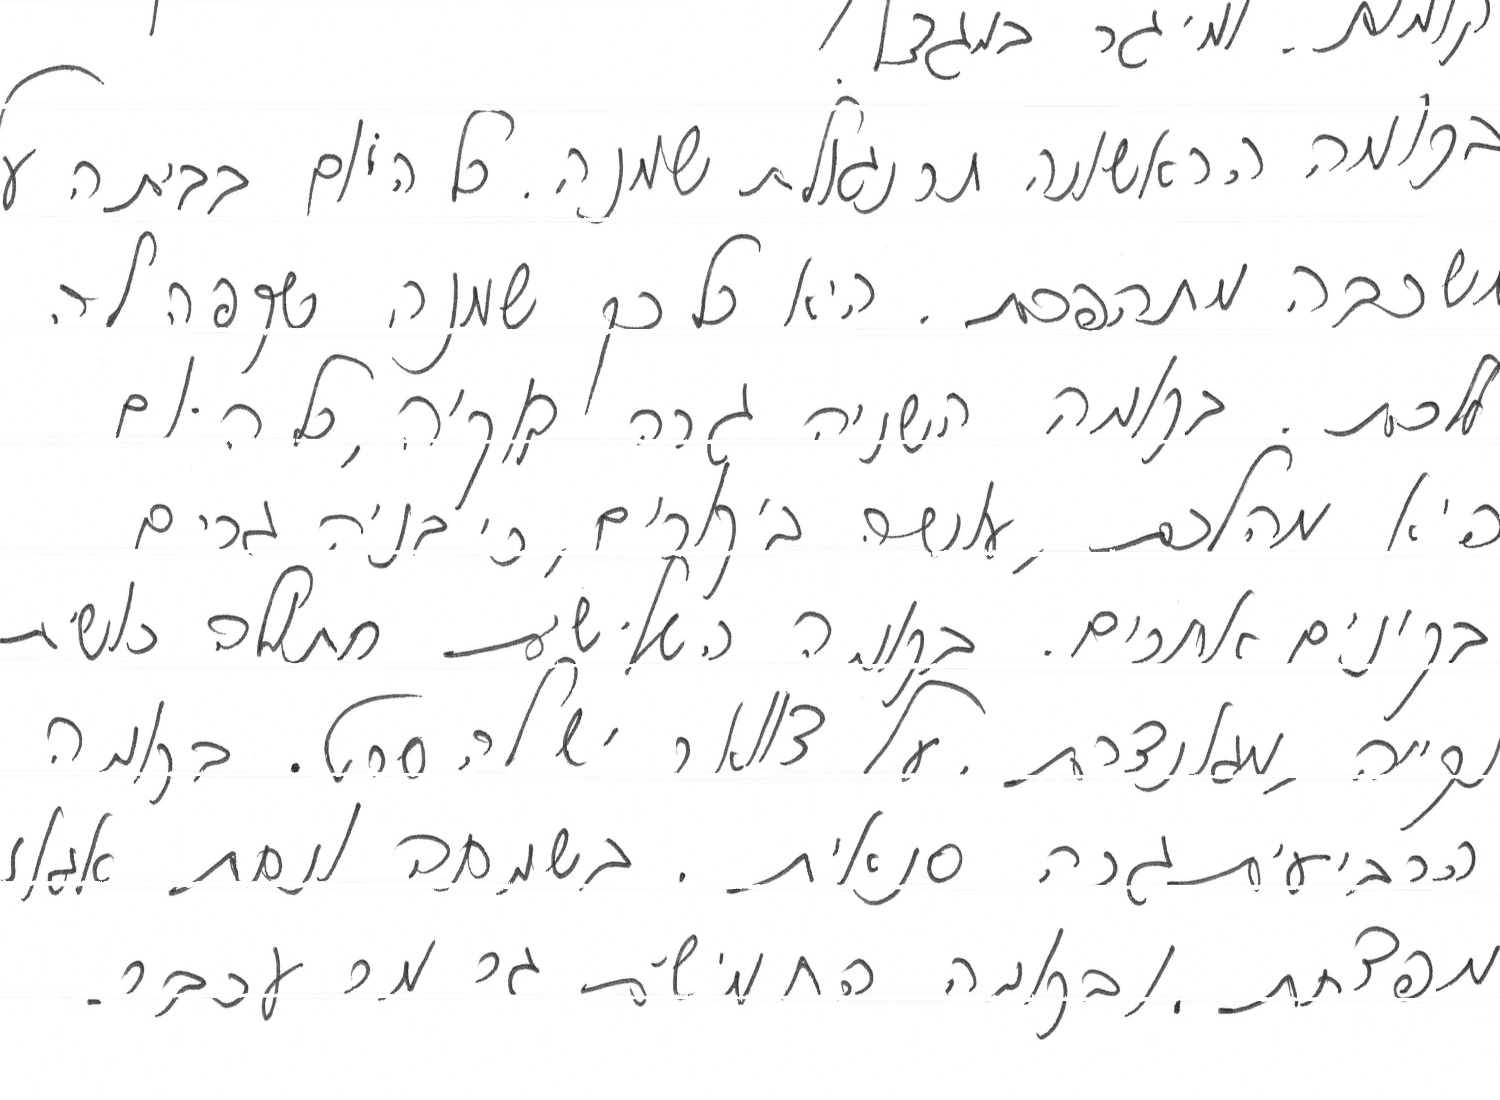 קומות. ומי גר במגדל?
בקומה הראשונה תרנגולת שמנה. כל היום בביתה על
משכבה מתהפכת. היא כל כך שמנה שקשה לה
ללכת. בקומה השניה גרה קוקיה, כל היום
היא מהלכת, עושה ביקורים, כי בניה גרים
בקינים אחרים. בקומה השלישית חתולה כושית
נקייה, מגונדרת. על צוואר יש לה סרט. בקומה
הרביעית גרה סנאית. בשמחה ונחת אגוזי
מפצחת. ובקומה החמישית גר מר עכבר.